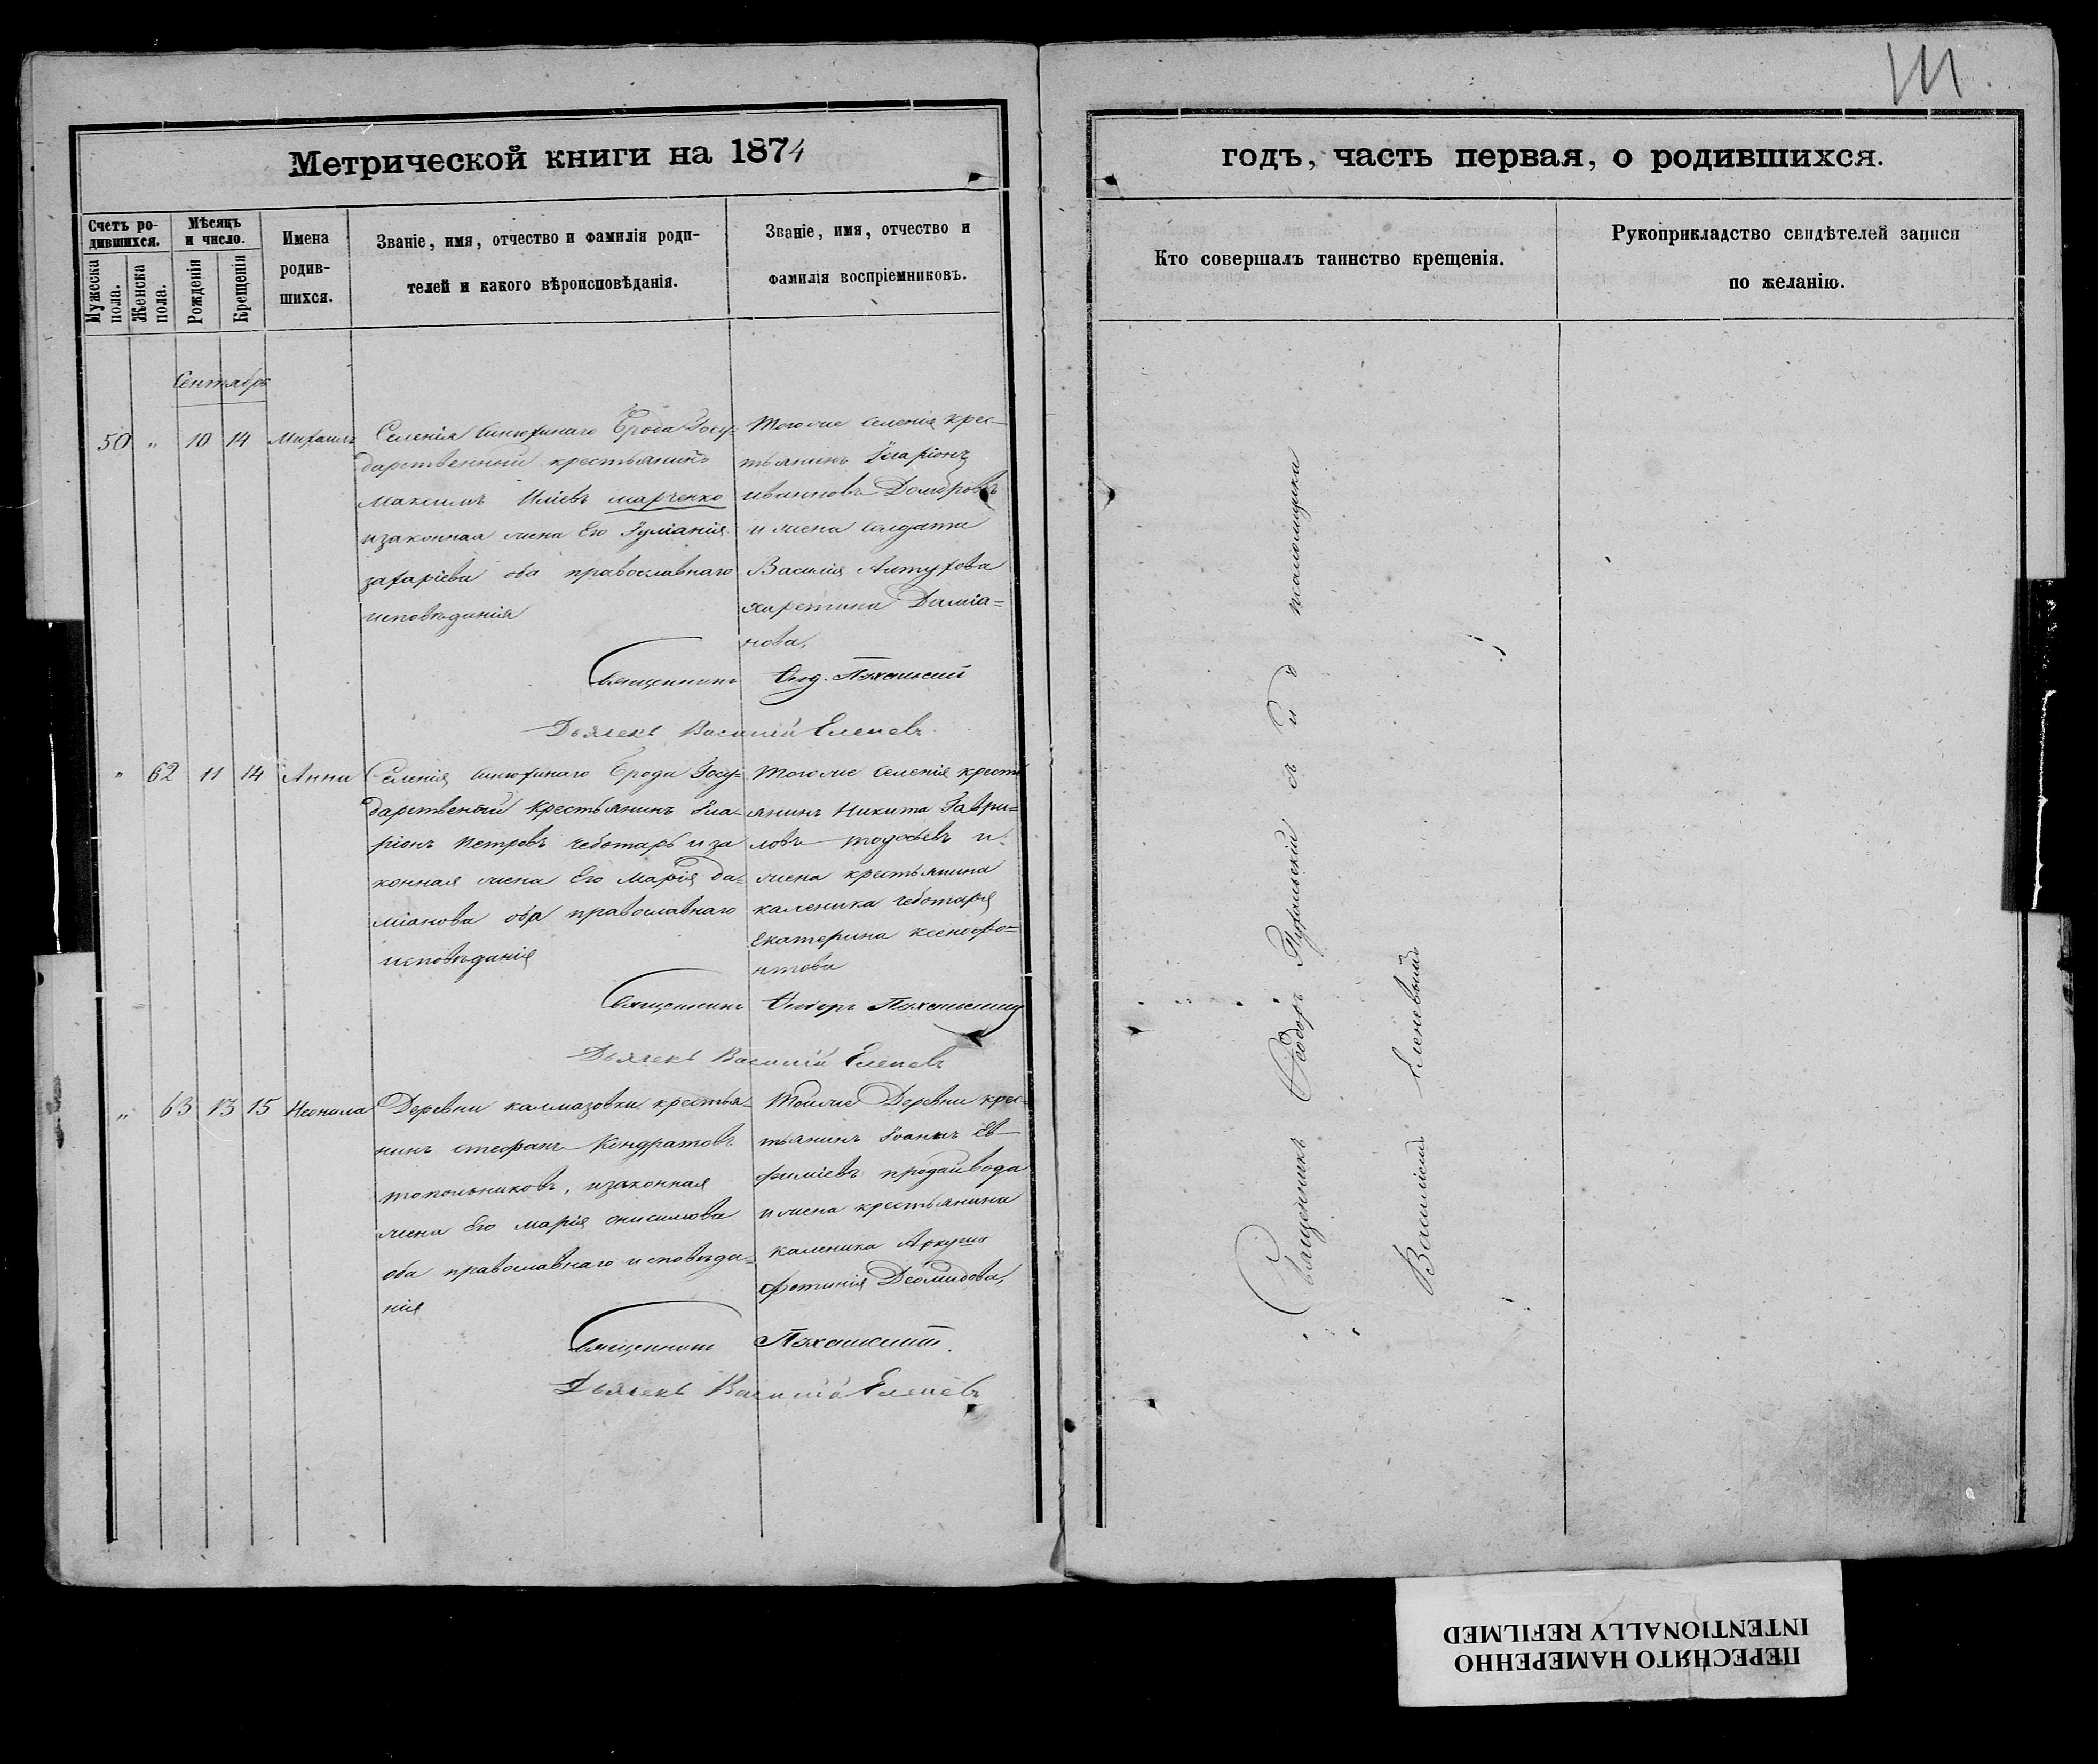 111.
Метрической книги на 1874
годъ, часть первая, о родившихся.
Счетъ ро-
дившихся.
Мужеска
пола.
Женска
пола.
Мѣсяцъ
и число.
Рожденія
Крещенія
Имена
родив-
шихся.
Званіе, имя, отчество и фамилія роди-
телей и какого вѣроисповѣданія.
Званіе, имя, отчество и
фамилія воспріемниковъ.
Кто совершалъ таинство крещенія.
Рукоприкладство свидѣтелей записи
по желанію.
Сентябрь
50 " 10 14 Михаилъ
Селенія Синюхинаго Брода Госу-
дарственный крестьянинъ
Максимъ Иліевъ марченко
изаконная жена Его Іуліанія
захаріева оба православнаго
исповѣданія
тогоже селенія крес-
тьянинъ Иларіонъ
ивановъ
и жена солдата
Василія Алтухова
харетина Даміа=
нова,
Священникъ Ѳеод.
Дьячекъ Василій Еленевъ
" 62 11 14 Анна
Селенія Синюхинаго Брода Госу=
дарственый крестьянинъ Ила-
ріонъ Петровъ чеботарь и за
конная жена Его Марія да=
міанова оба православнаго
исповѣданія
тогоже селенія крестъ
янинъ Никита Гаври=
ловъ и
жена крестьянина
каленика чеботаря
Екатерина ксенофо=
нтова
Священникъ Ѳеодоръ
Дьячекъ Василій Еленевъ
" 63 13 15 Неонила
Деревни калмазовки крестья-
нинъ стефанъ Кондратовъ
топольниковъ, изаконная
жена Его марія онисимова
оба православнаго исповѣда=
нія
Тойже Деревни крес=
тьянинъ Іоаннъ Ев-
фиміевъ продайвода
и жена крестьянина
каленика Аркуша
фотинія Деомидова,
Священникъ
Дьячекъ Василій Еленевъ
Священникъ Ѳеодоръ съ и д псаломщика
Василіемъ Еленевымъ
ПЕРЕСНЯТО НАМЕРЕННО
INTENTIONALLY REFILMED